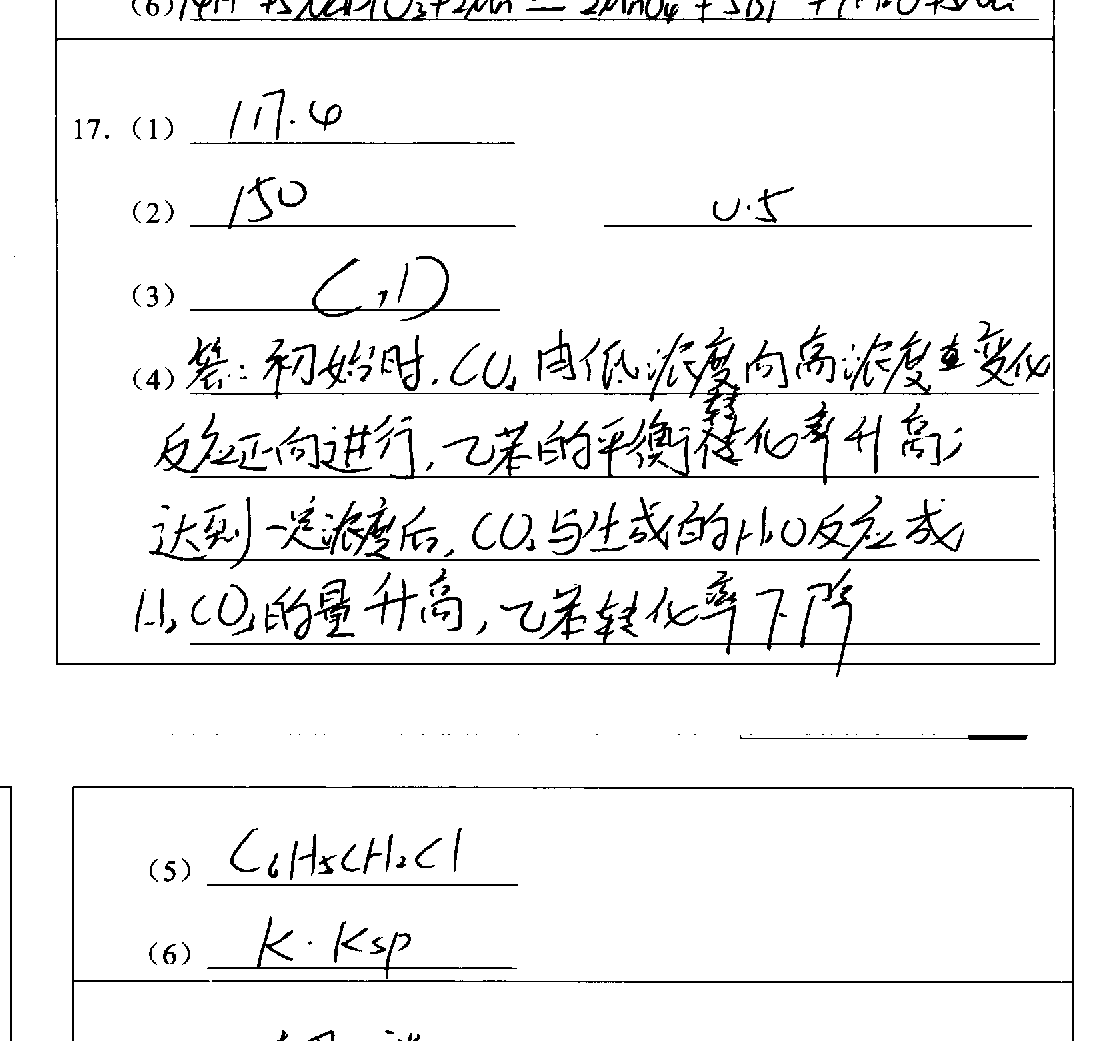 17. (1) 117.6
(2) 150 0.5
(3) C,D
(4) 答:初始时,CO₂由低浓度向高浓度变化
反应正向进行,乙苯的平衡转化率升高;
达到一定浓度后,CO₂与生成的H₂O反应成
H₂CO₃的量升高,乙苯转化率下降
(5) C₆H₅CH₂Cl
(6) K·Ksp